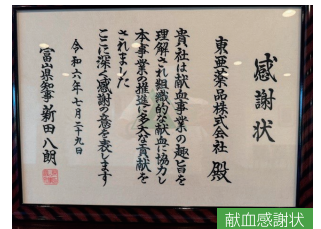 感謝状
東亜薬品株式会社 殿
貴社は献血事業の趣旨を
理解され組織的な献血に協力し
本事業の推進に多大な貢献を
されました
ここに深く感謝の意を表します
令和六年七月二十九日
富山県知事 新田八朗
献血感謝状